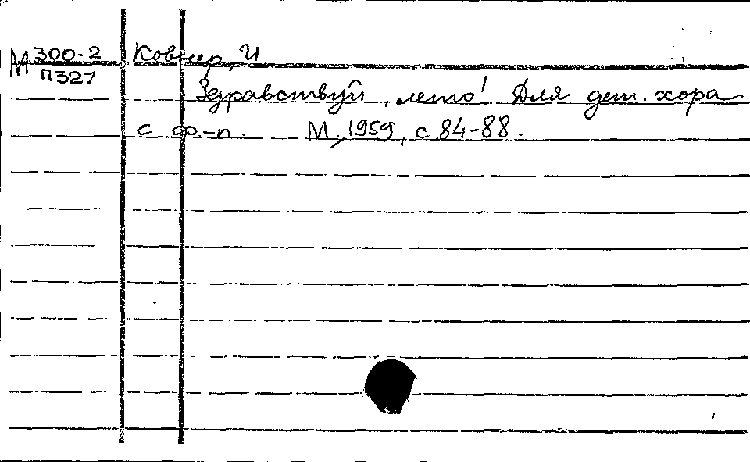 М 300-2 Ковнер, И
П327
Здравствуй, лето! Для дет. хора
с ф.-п. М., 1959, с 84-88.